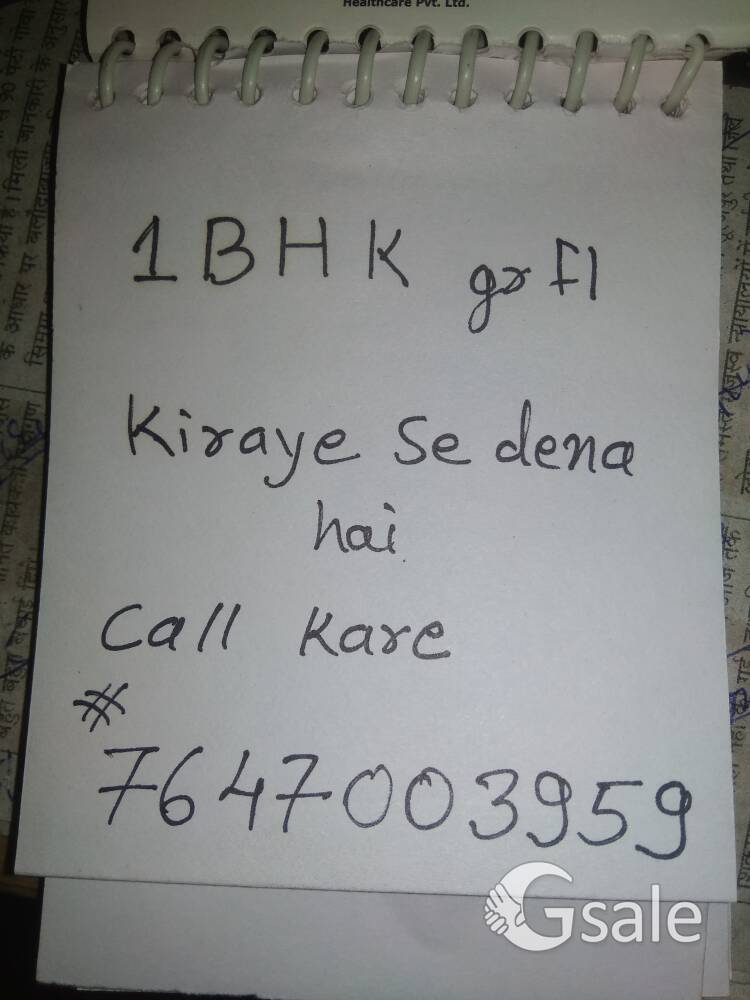 Healthcare Pvt. Ltd.
1BHK gr fl
Kiraye Se dena
hai
Call Kare
#
7647003959
Gsale